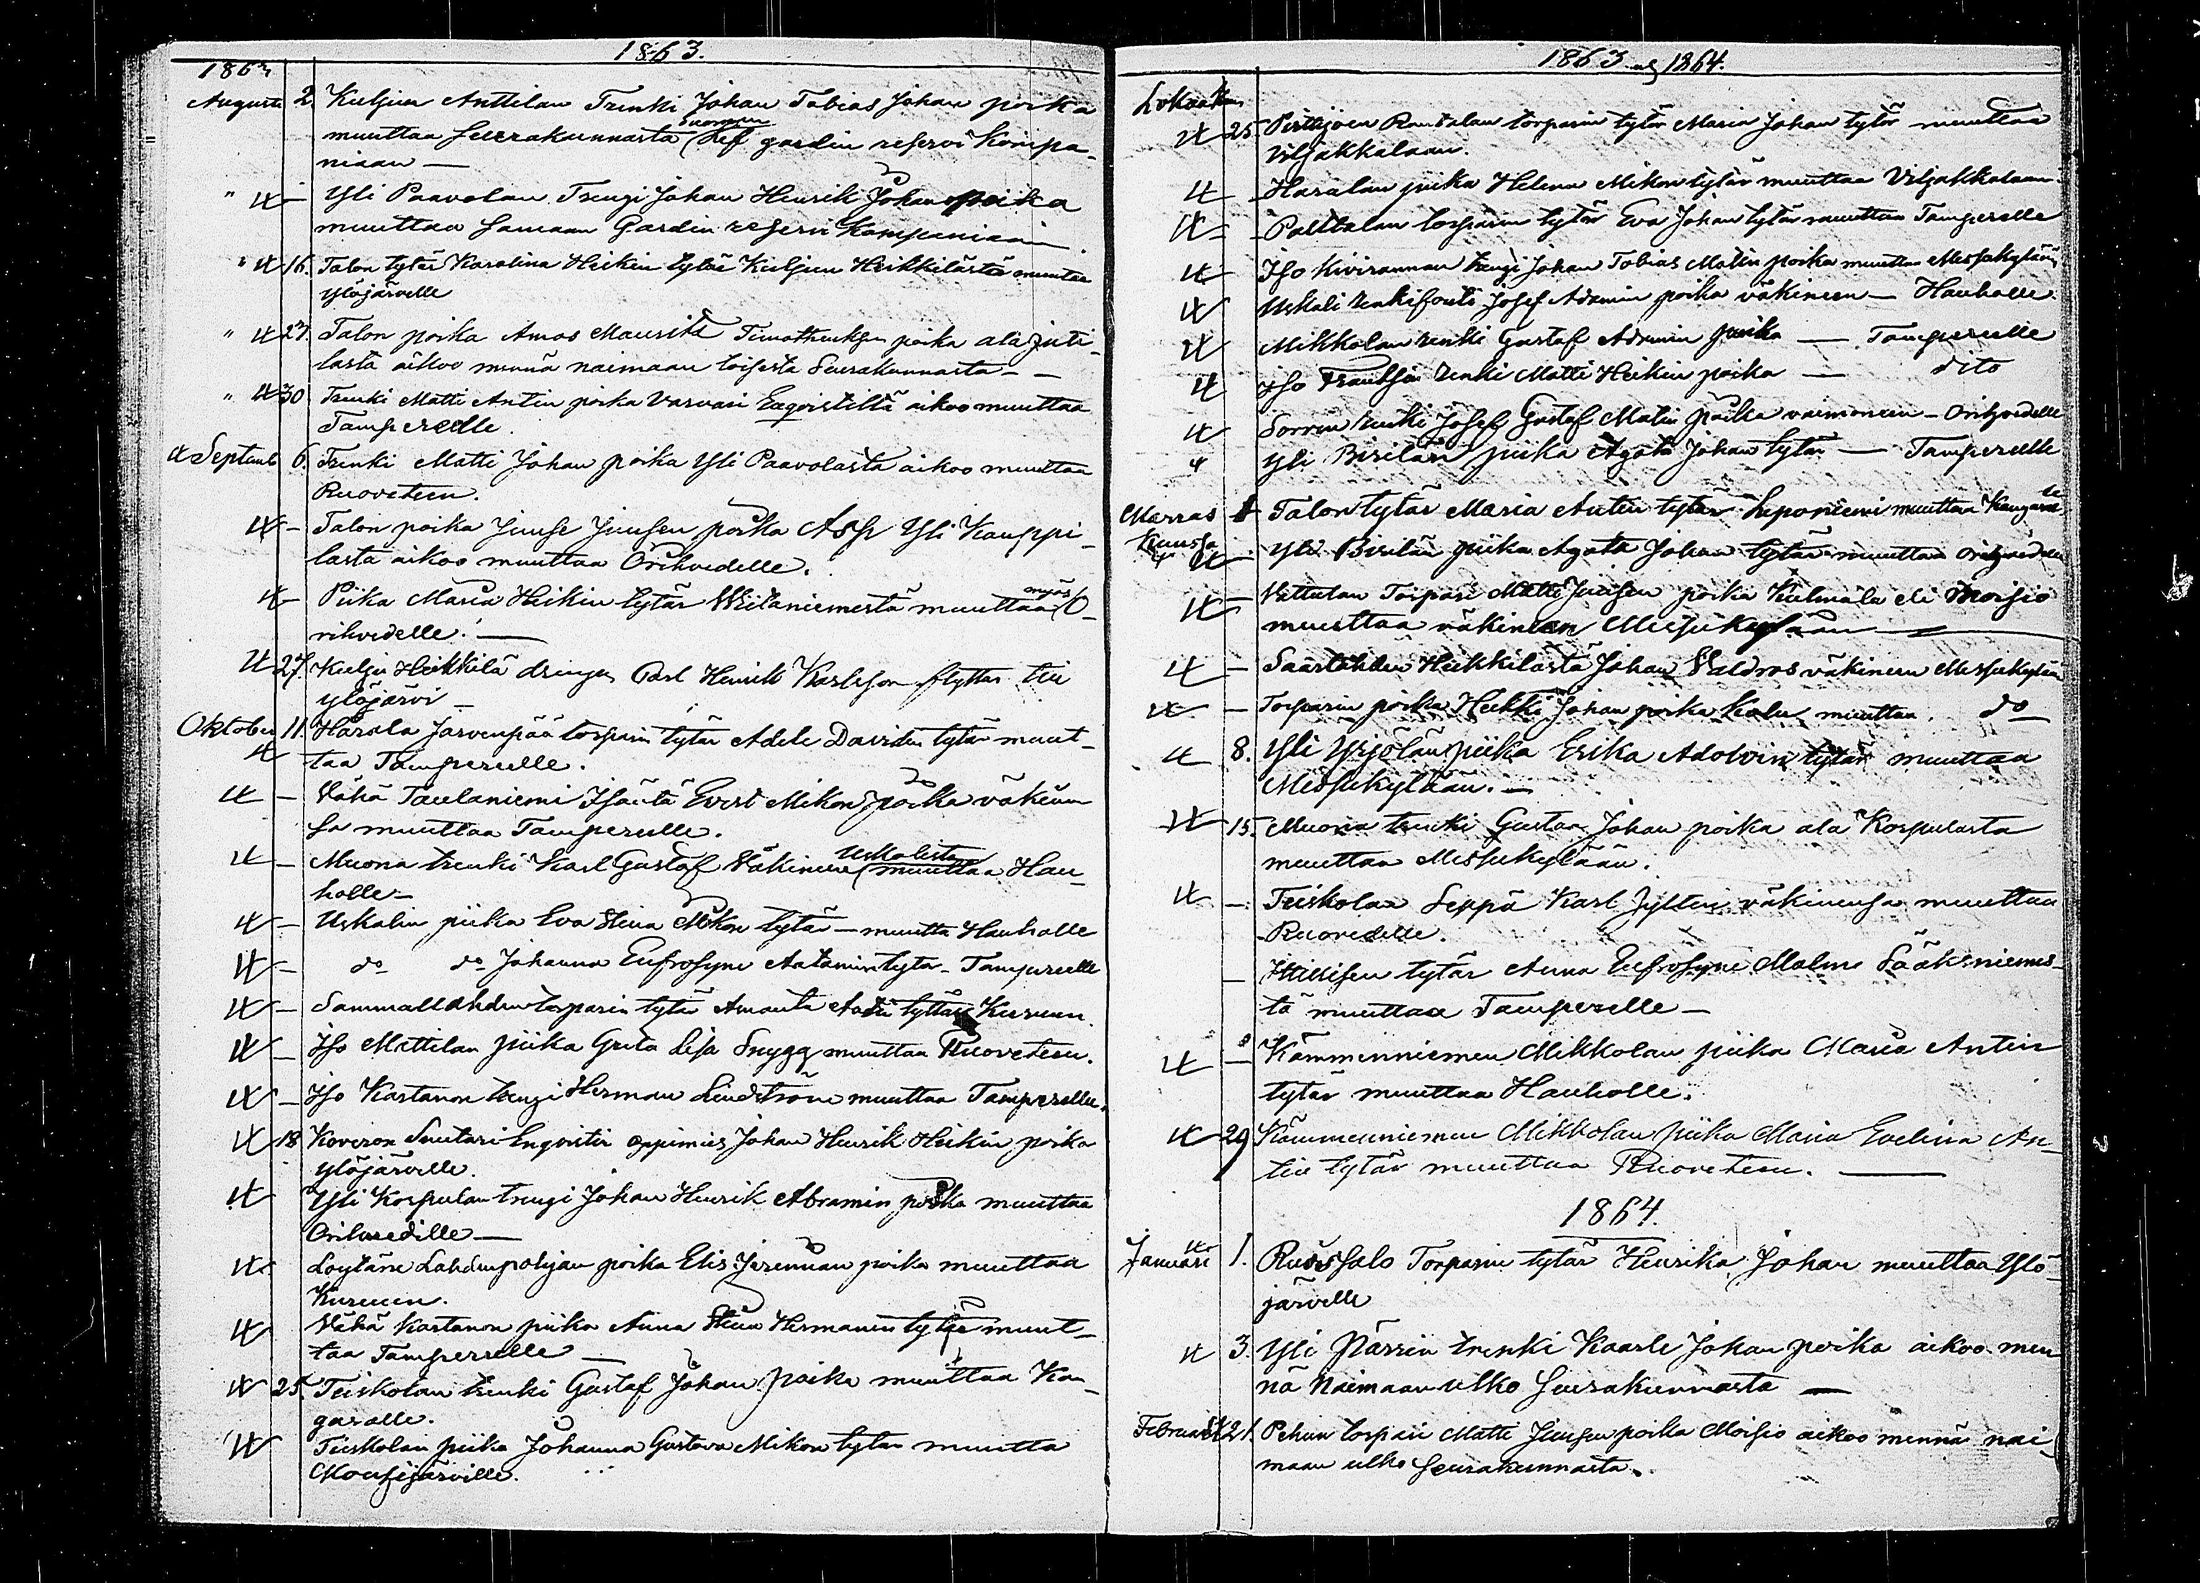 1863.
1863
Augusti 2. Kuljun Anttilan Trenki Johan Tobias Johan poika
muuttaa Seurakunnasta Suomen Kejs gardin reservi Kompa-
niaan —
" — Yli Paavolan Trengi Johan Henrik Johan poika
muuttaa Samaan Gardin reservi Kompaniaan
" 16. Talon tytär Karolina Heikin tytär Kuljun Heikkilästä muuttaa
Ylöjärvelle
" 27. Talon poika Amos Maurits poika ala Juti-
lasta aikoo mennä naimaan toisesta Seurakunnasta — —
" 30 Trenki Matti Antin poika Varvari aikoo muuttaa
Tampereelle.
Septemb 6. Trenki Matti Johan poika Yli Paavolasta aikoo muuttaa
Ruoveteen.
— Talon poika Juuse Juusen poika Yli Kauppi-
lasta aikoo muuttaa Orihvedelle.
— Piika Maria Heikin tytär Viitaniemestä muuttaa myös O-
rihvedelle. —
27. Kulju Heikkilä drängen Carl Henrik Karlsson flyttar till
Ylöjärvi —
Oktober 11. Harala Jarvenpää torparin tytär Adele Davidin tytär muut-
taa Tampereelle.
— Vähä Taulaniemi Isäntä Evert Mikon poika väkinen-
sä muuttaa Tampereelle.
— Muona trenki Karl Gustaf Väkineen Uskalista muuttaa Hau-
holle —
— Uskalin piika Eva Stina Mikon tytär — muutta Hauholle
— do do Johanna Eufrosyne Aatamin tytär - Tampereelle
— Sammallahden torparin tytär Amanta Antin tyttär Kuruun.
— Iso Mattilan piika Greta Lisa Snygg muuttaa Ruoveteen.
— Iso Kartanon trengi Herman Lindström muuttaa Tampereelle.
18 Koveron Suutari Engvistin oppimies Johan Henrik Heikin poika
Ylöjärvelle.
Yli Korpulan trengi Johan Henrik Abramin poika muuttaa
Orihvedille —
Löytäne Lahdenpohjan poika Elis Jeremian poika muuttaa
Kuruun.
Vähä Kartanon piika Anna Stina Hermanin tytär muut-
taa Tampereelle —
25. Teiskolan trenki Gustaf Johan poika muuttaa Kan-
gasalle.
Teiskolan piika Johanna Gustava Mikon tytär muutta
Mouhijärville.
1863 och 1864.
Lokakuu
25. Pirttijoen Rantalan torparin tytär Maria Johan tytär muuttaa
Viljakkalaan.
— Haralan piika Helena Mikon tytär muuttaa Viljakkalaan
— Palttalan torparin tytär Eva Johan tytär muuttaa Tampereelle
Iso Kivirannan trengi Johan Tobias Matin poika muuttaa Messukylään
Uskali renki Josef Adamin poika väkineen — Hauholle.
Mikkolan renki Gustaf Adamin poika — Tampereelle
Iso renki Matti Heikin poika — dito
Sorvan renki Josef Gustaf Matin poika vaimoneen — Orihvedelle
Yli Birilän piika Agata Johan tytär — Tampereelle
Marras 1 Talon tytär Maria Antin tytär Leponiemi muuttaa Kangasalle
kuussa
— Yli Birilän piika Agata Johan tytär muuttaa Orihvedelle
— Vattulan Torpari Matti Juusen poika Kulmala eli Moisio
muuttaa väkineen Messukylään —
— Saarlahden Heikkilästä Johan Valdros väkineen Messukylään
— Torparin poika Heikki Johan poika muuttaa. do
8. Yli Yrjölän piika Erika Adolvin tytär muuttaa
Messukylään. —
15. Muona trenki Gustav Johan poika ala Korpulasta
muuttaa Messukylään.
— Teiskolan Seppä Karl väkinensä muuttaa
Ruovedelle.
— tytär Anna Eufrosyne Malm Sääksniemes-
tä muuttaa Tampereelle —
— Kämmenniemen Mikkolan piika Maria Antin
tytär muuttaa Hauholle.
29 Kämmenniemen Mikkolan piika Maria Evelina An-
tin tytär muuttaa Ruoveteen. —
1864.
Januari 1. Torparin tytär Henrika Johan muuttaa Ylö-
järvelle
3. Yli Pärrin trenki Kaarle Johan poika aikoo men
nä Naimaan ulko Seurakunnasta —
Februari 21. torpari Matti Juusen poika Moisio aikoo mennä nai
maan ulko Seurakunnasta.